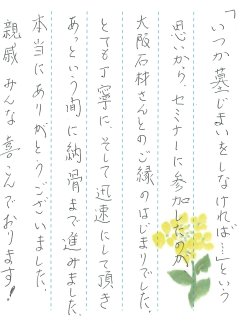 「いつか墓じまいをしなければ…」という
思いから、セミナーに参加したのが
大阪石材さんとのご縁のはじまりでした。
とても丁寧に、そして迅速にして頂き
あっという間に納骨まで進みました。
本当にありがとうございました。
親戚みんな喜んでおります！